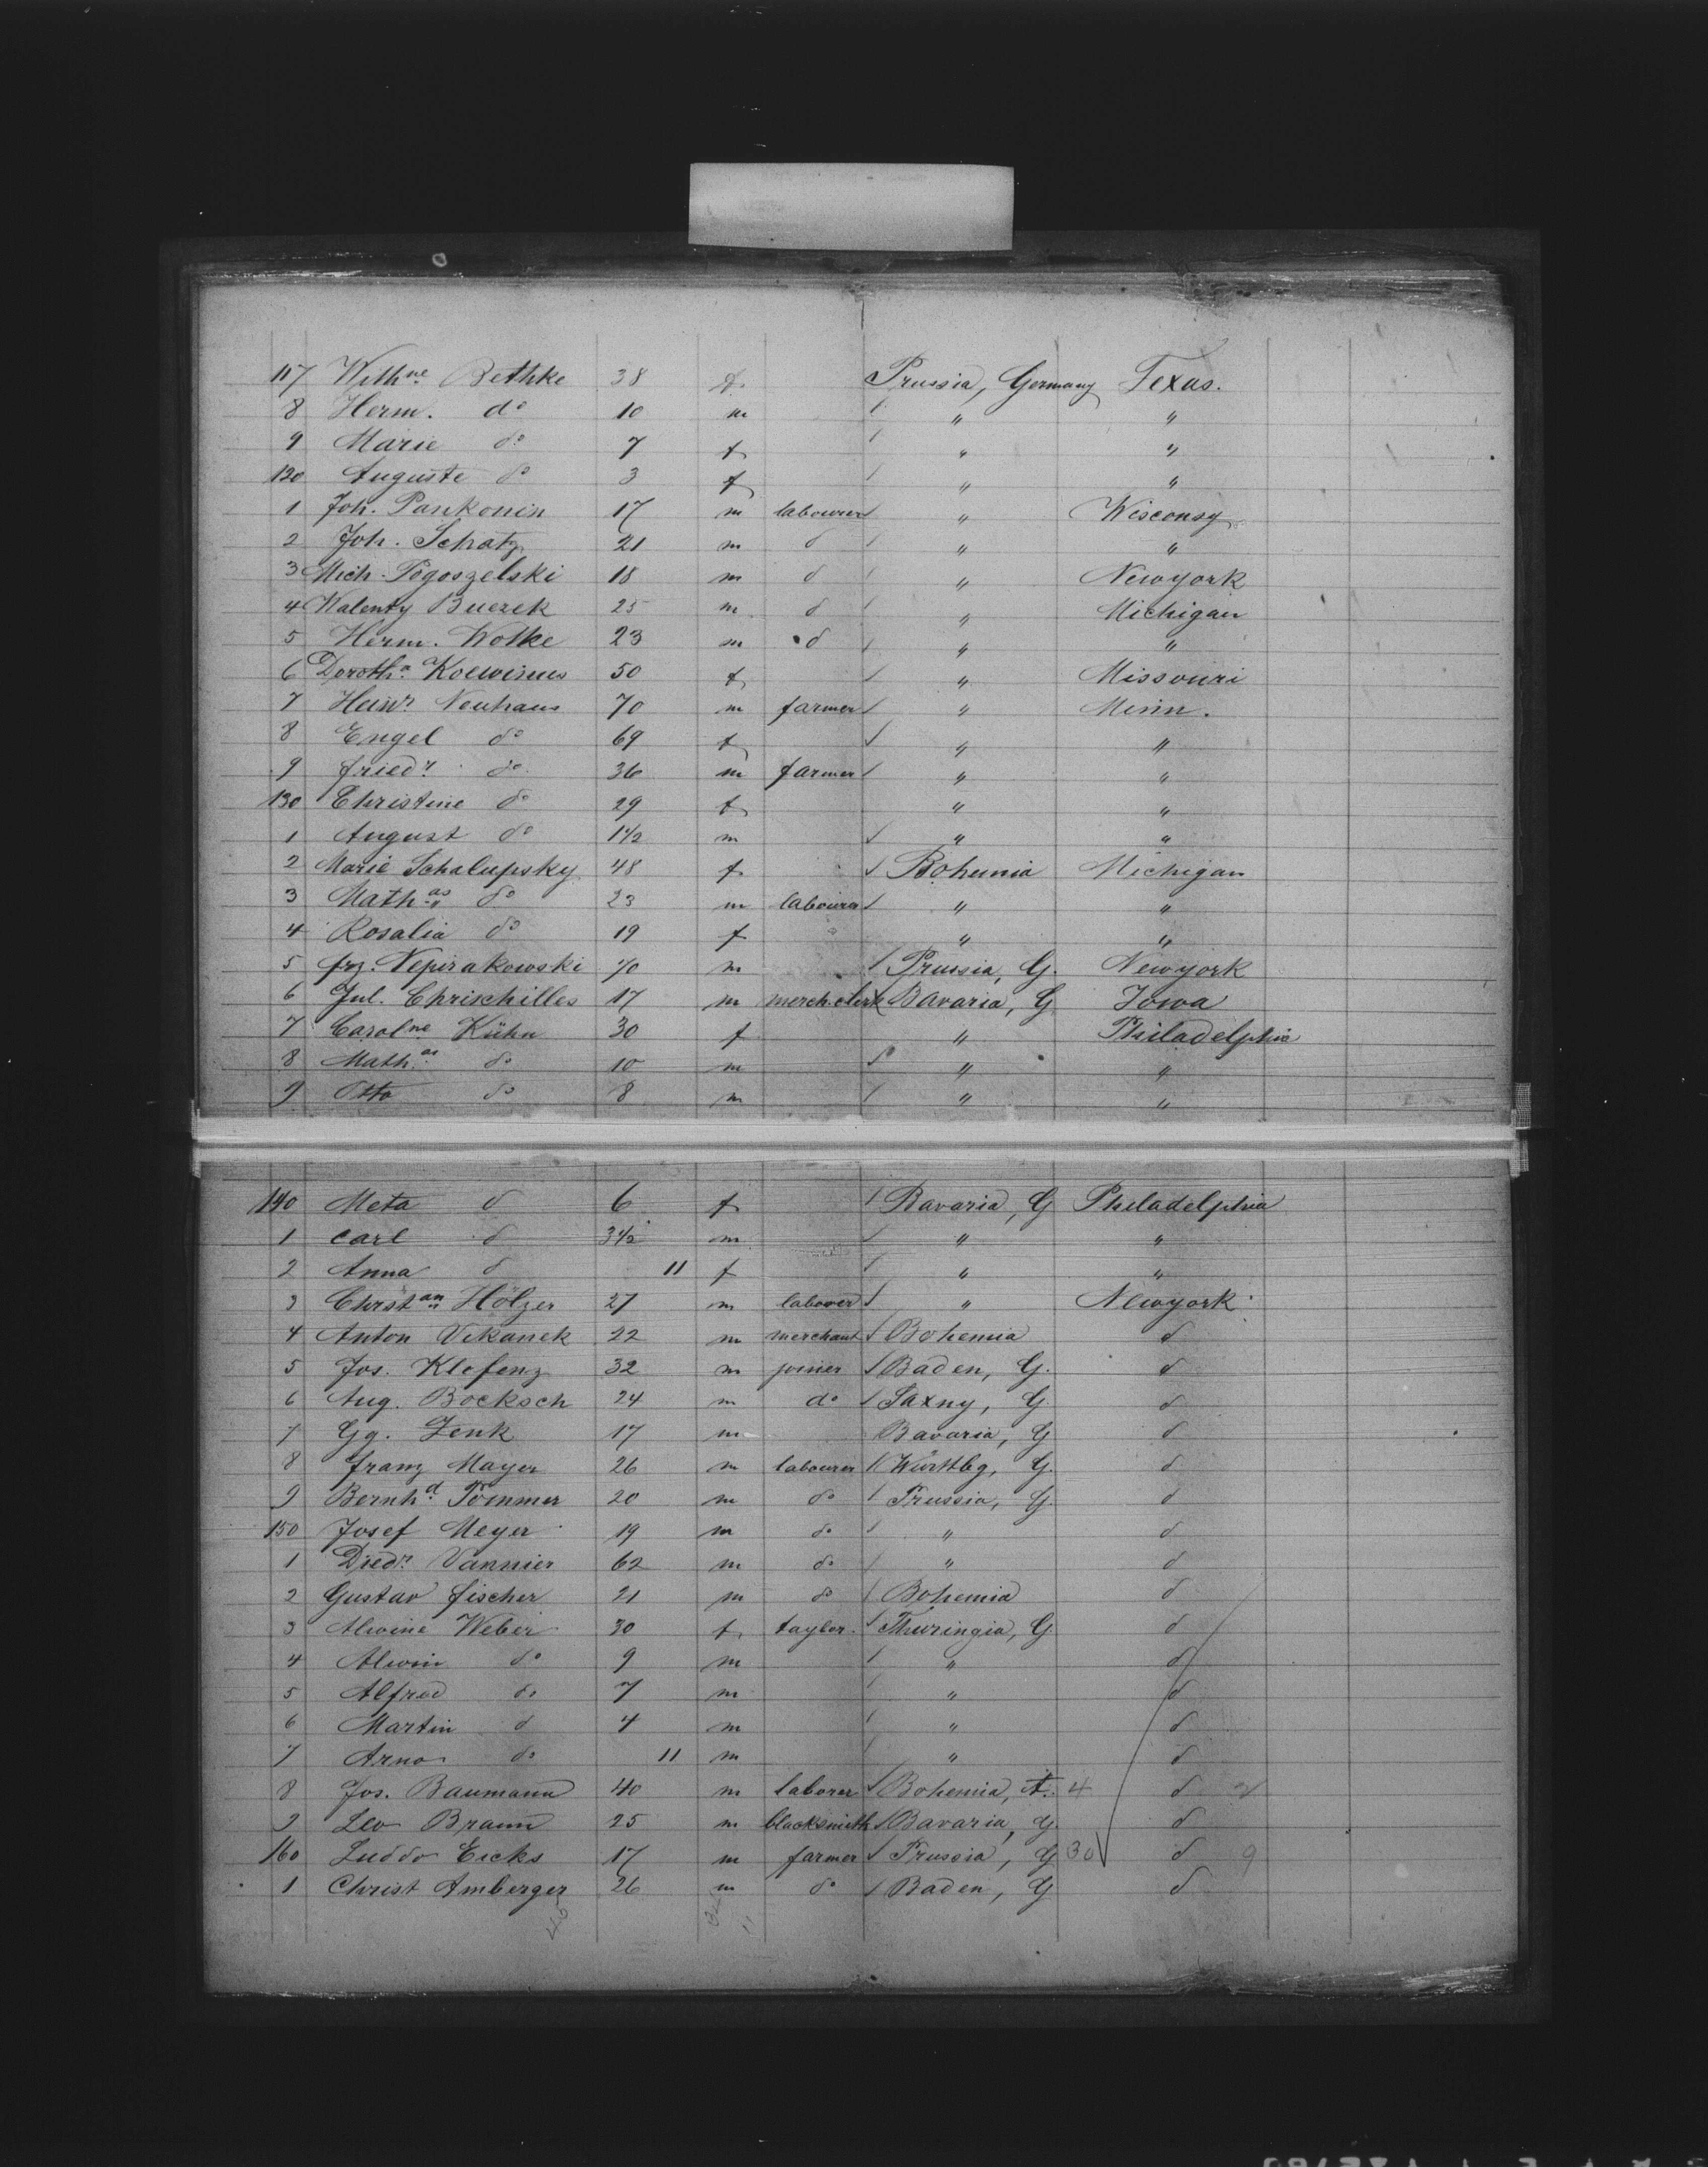 117 Wilhne Bethke 38 f. Prussia, Germany Texas.
8 Herm. do 10 m " "
9 Marie do 7 f " "
120 Auguste do 3 f " "
1 Joh. Pankonin 17 m labourer " Wisconsy
2 Joh. Schatz 21 m d " "
3 Mich. Pogoszelski 18 m d " Newyork
4 Walenty Buczek 25 m d " Michigan
5 Herm. Wolke 23 m d " "
6 Dorotha 50 f " Missouri
7 Heinr. Neuhaus 70 m farmer " Minn.
8 Engel do 69 f " "
9 friedr. do 36 m farmer " "
130 Christine do 29 f " "
1 August do 1 1/2 m " "
2 Marie Schalupsky 48 f Bohemia Michigan
3 Mathas do 23 m labourer " "
4 Rosalia do 19 f " "
5 frz. Nepirakowski m Prussia, G. Newyork
6 Jul. Chrischilles 17 m merch. clerk Bavaria, G Iowa
7 Carolne Kühn 30 f " Philadelphia
8 Mathas do 10 m " "
9 Otto do 8 m " "
140 Meta d 6 f Bavaria, G Philadelphia
1 Carl d 3 1/2 m " "
2 Anna d 11 f " "
3 Christan Hölzer 27 m laborer " Newyork
4 Anton Vekanek 22 m merchant Bohemia d
5 Jos. Klefenz 32 m joiner Baden, G. d
6 Aug. Bocksch 24 m do Saxny, G d
7 Gg. Zenk 17 m Bavaria, G d
8 franz Mayer 26 m labourer Württbg, G. d
9 Bernhd. Pommer 20 m do Prussia, G. d
150 Josef Meyer 19 m do " d
1 Diedr. Vannier 62 m do " d
2 Gustav fischer 21 m do Bohemia d
3 Alwine Weber 30 f taylor. Thuringia, G d
4 Alwin do 9 m " d
5 Alfred do 7 m " d
6 Martin d 4 m " d
7 Arno do 11 m " d
8 Jos. Baumann 40 m laborer Bohemia, A. 4 d
9 Leo Braun 25 m blacksmith Bavaria, G. d
160 Luddo Eicks 17 m farmer Prussia, G 30 d 9
1 Christ Amberger 26 m do Baden, G d